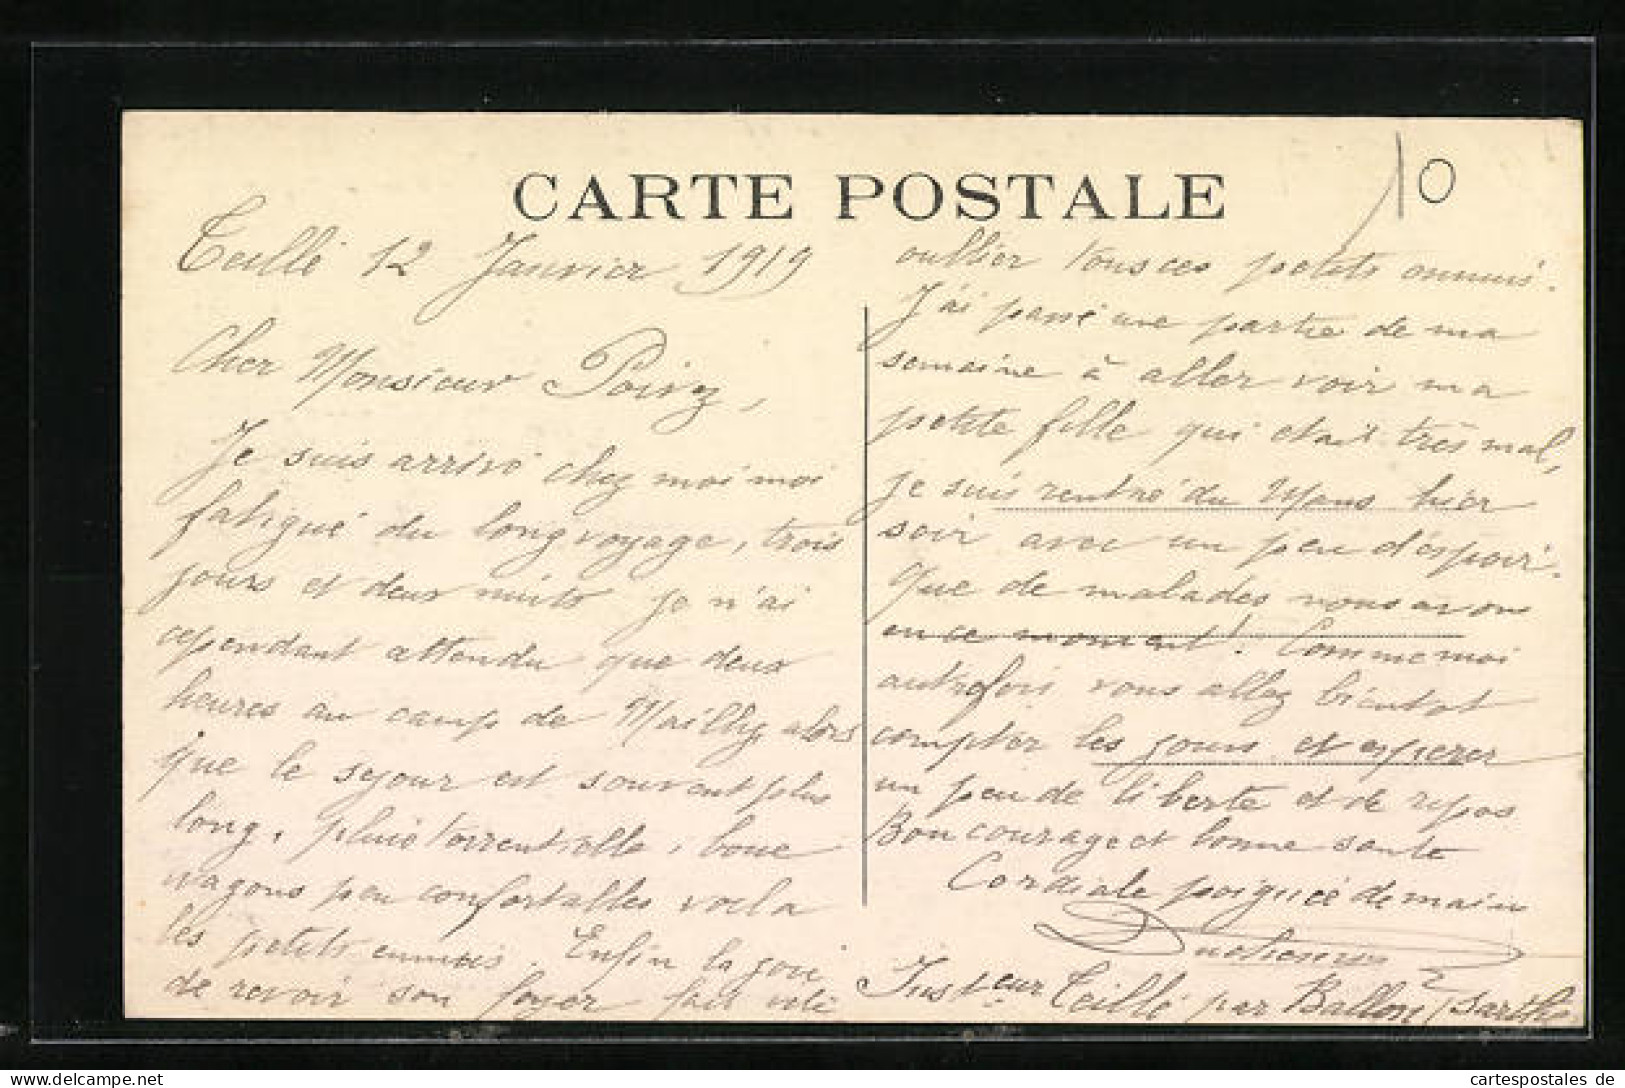 CARTE POSTALE
10
Teillé 12 Janvier 1919
Cher Monsieur Poirz,
Je suis arrivé chez moi moi
fatigué du long voyage, trois
jours et deux nuits je n'ai
cependant attendu que deux
heures au camp de Mailly alors
que le sejour est souvent plus
long, pluie torrentielle, boue
wagons peu confortables voila
les petits ennuis. Enfin la joie
de revoir son foyer fait
oublier tous ces petits ennuis.
J'ai passé une partie de ma
semaine à aller voir ma
petite fille qui etait très mal,
je suis rentré du Mans hier
soir avec un peu d'espoir.
Que de malades nous avons
en ce moment! Comme moi
autrefois vous allez bientot
compter les jours et esperer
un peu de liberte et de repos
Bon courage et bonne sante
Cordiale poignée de main
Inst eur Teillé par Ballon (Sarthe
cartespostales de